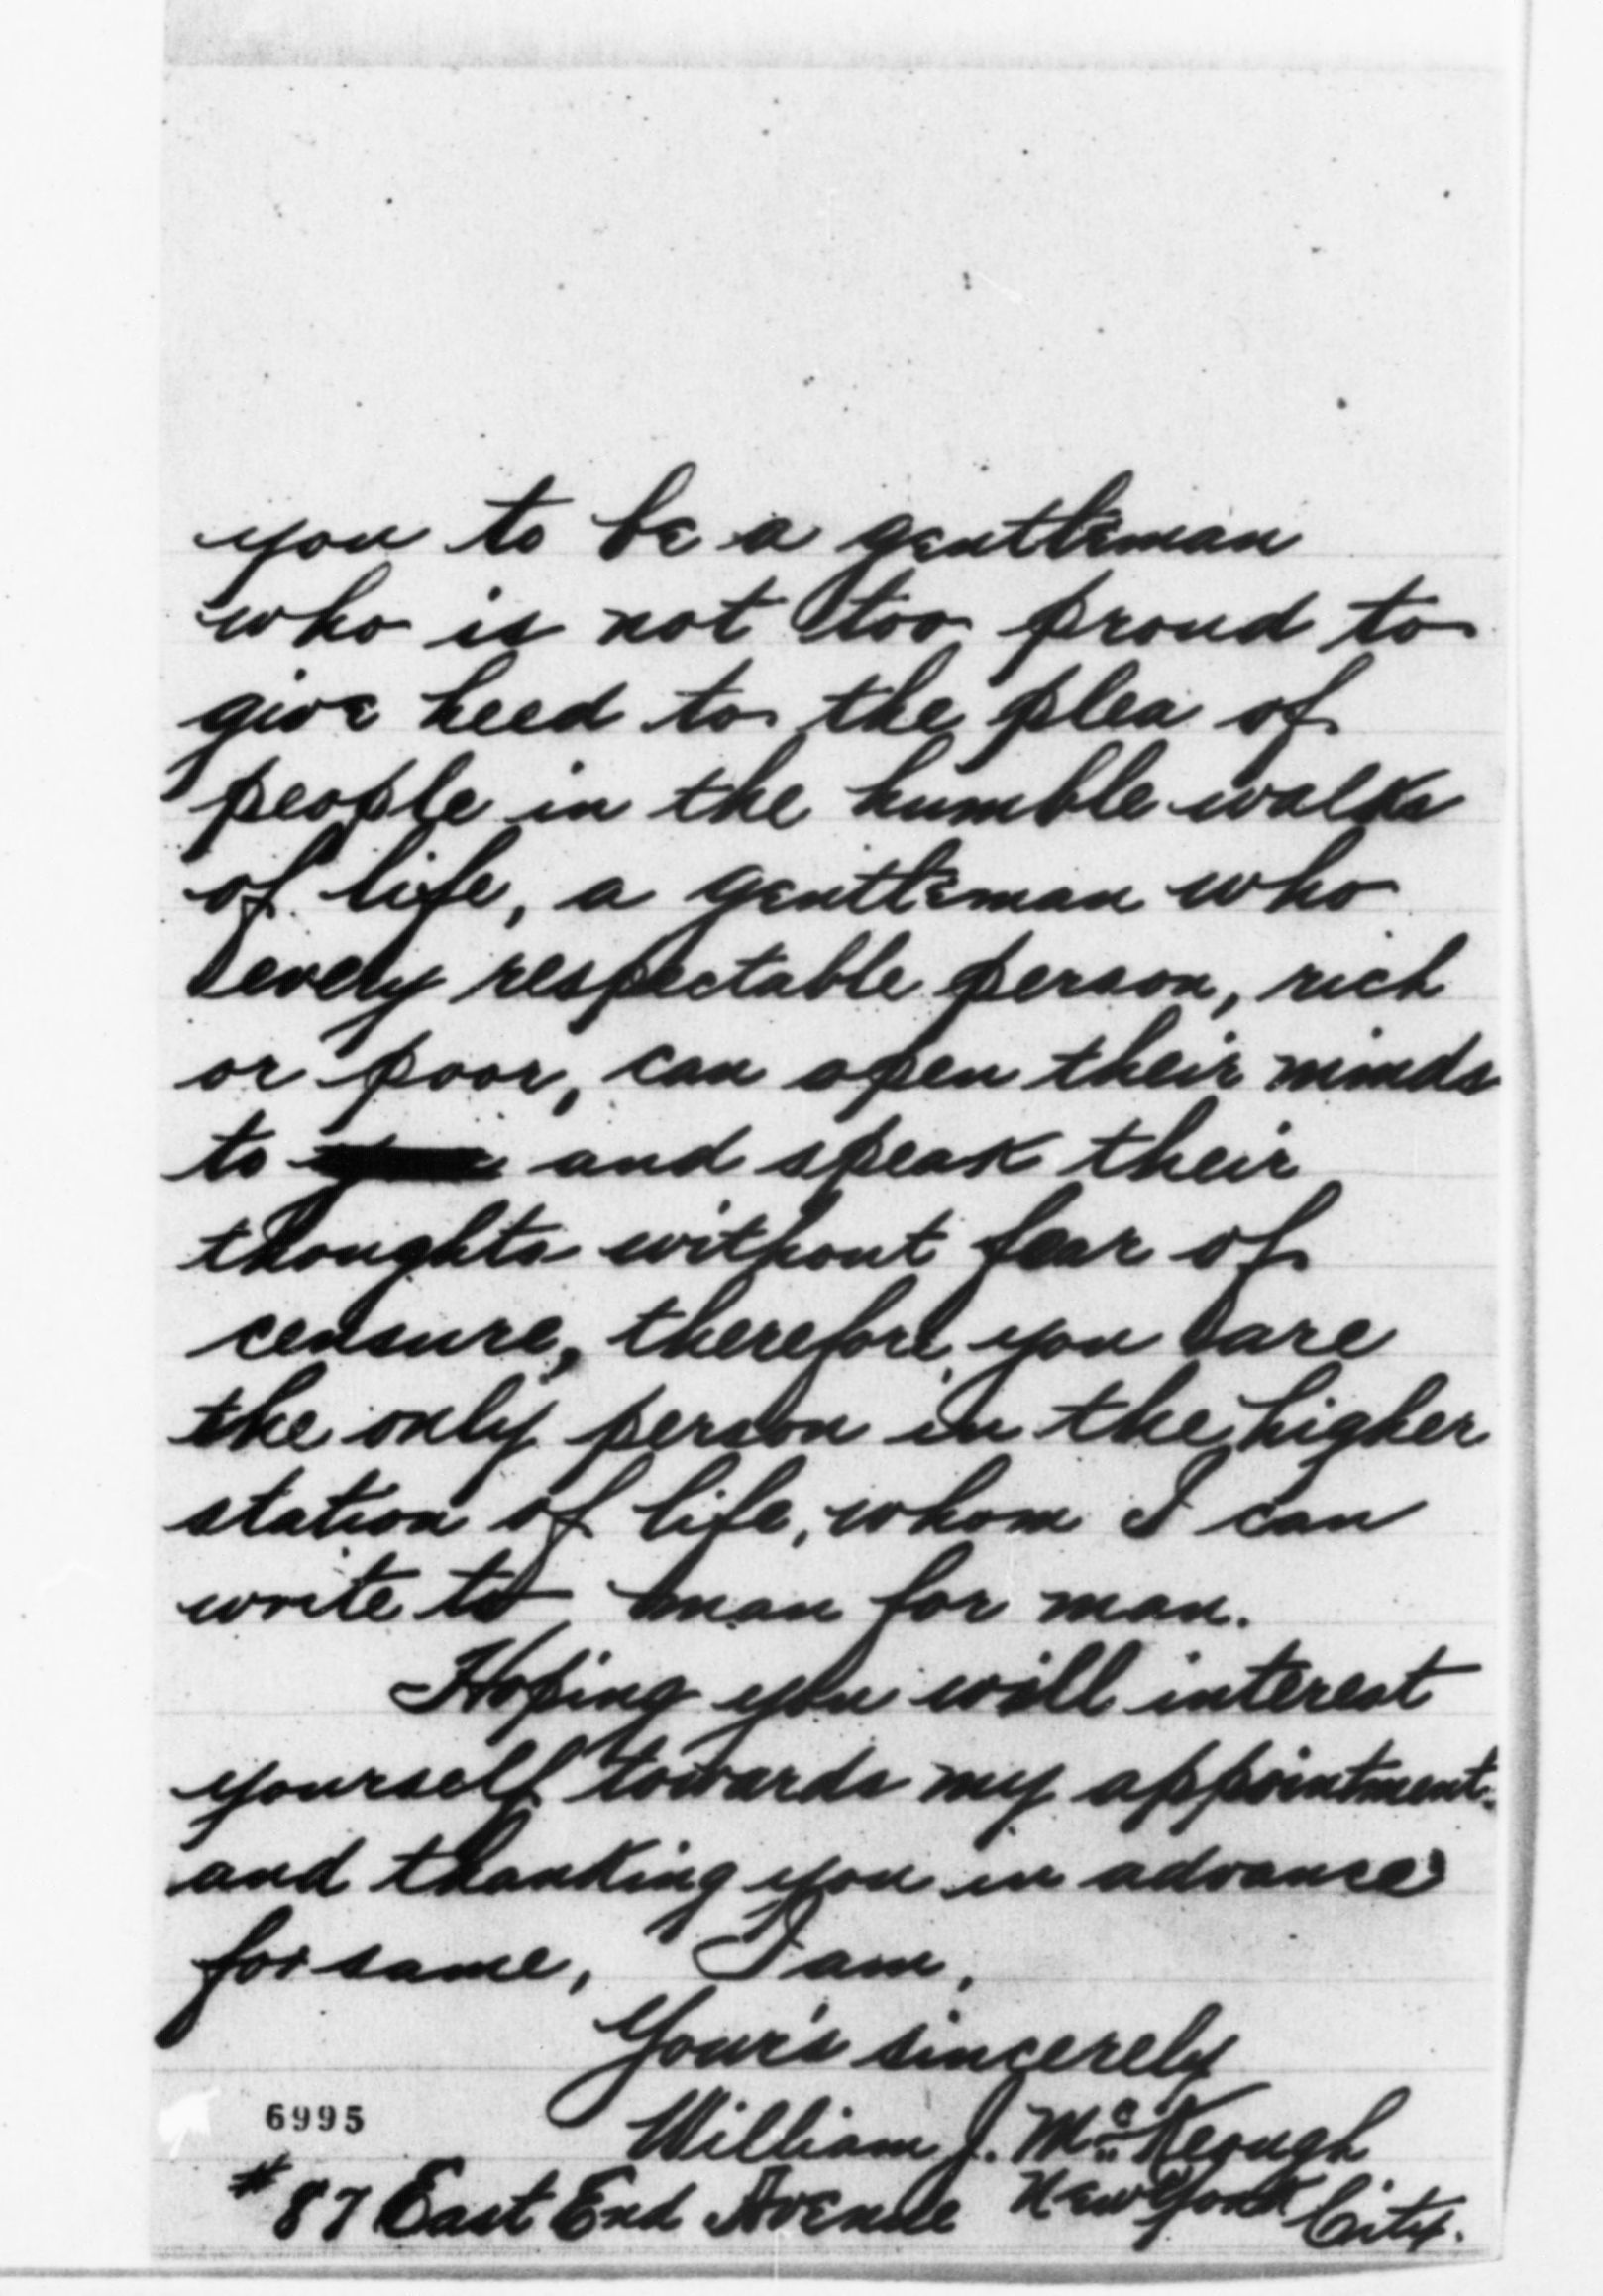 you to be a gentleman
who is not too proud to
give heed to the plea of
people in the humble walks
of life, a gentleman who
every respectable person, rich
or poor, can open their minds
to and speak their
thoughts without fear of
censure, therefore you are
the only person in the higher
station of life, whom I can
write to man for man.
Hoping you will interest
yourself towards my appointment.
and thanking you in advance
for same, I am,
Your's sincerely
6995
William J. McKeough
# 87 East End Avenue New York City.